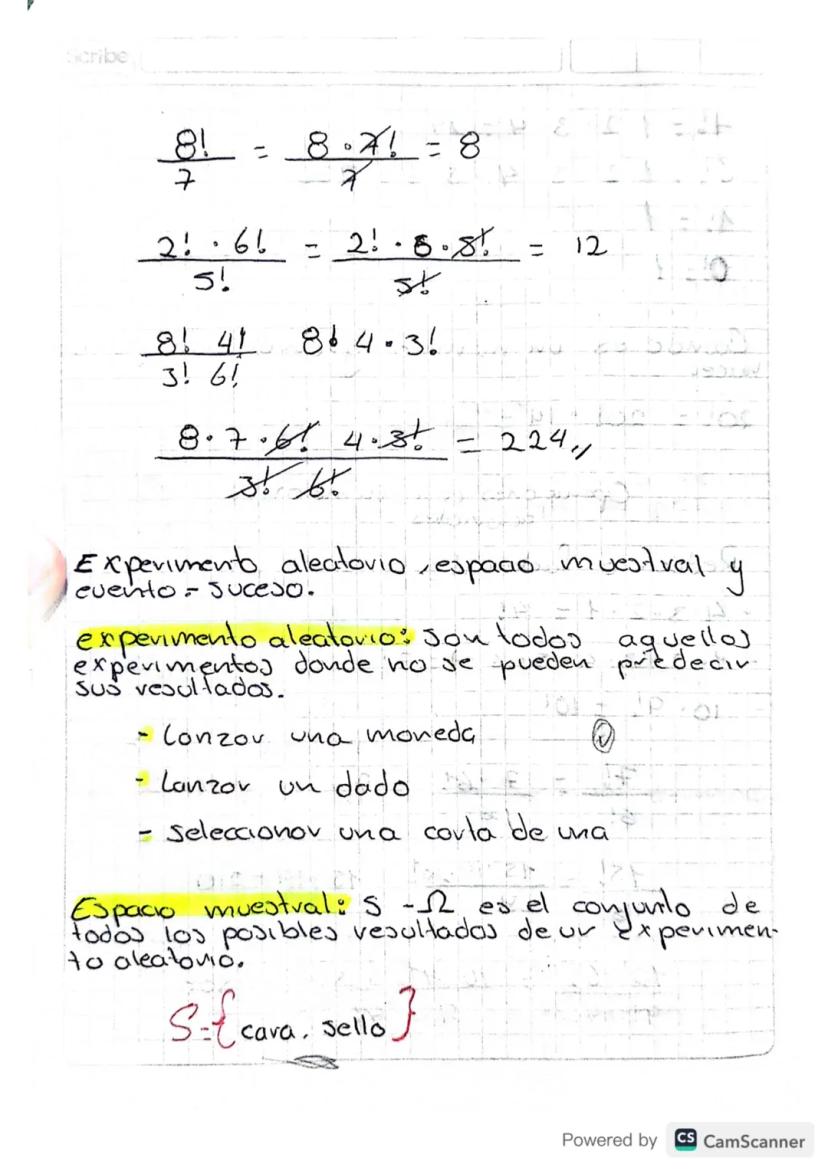 Scribe
8!/7 = 8 · 7!/7 = 8
2! · 6!/5! = 2! · 6 · 5!/5! = 12
8! 4!/3! 6! 8! 4 · 3!
8 · 7 · 6! 4 · 3!/3! 6! = 224,,
Experimento aleatorio, espacio muestral y
evento = suceso.
experimento aleatorio: son todos aquellos
experimentos donde no se pueden predecir
sus resultados.
- Lanzar una moneda
- Lanzar un dado
- seleccionar una carta de una
Espacio muestral: S - Ω es el conjunto de
todos los posibles resultados de un experimen-
to aleatorio.
S = {cara, sello}
Powered by CS CamScanner